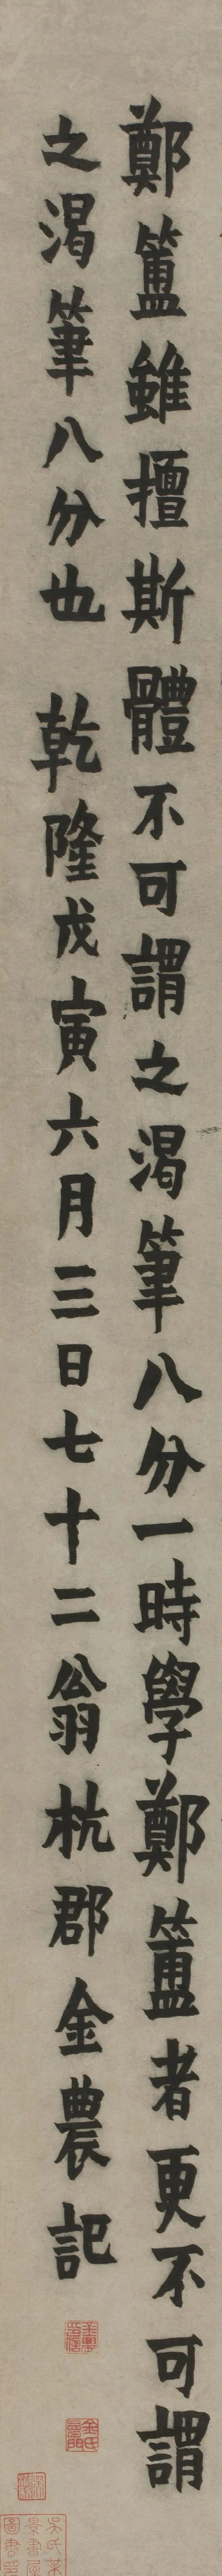 鄭簠雖擅斯體不可謂之渴筆八分一時學鄭簠者更不可謂
之渴筆八分也 乾隆戊寅六月三日七十二翁杭郡金農記